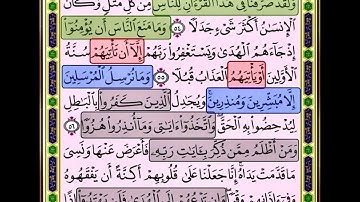 ولقد صرفنا في هذا القرءان للناس من كل مثل وكان
الإنسان أكثر شيء جدلا ٥٤ وما منع الناس أن يؤمنوا
إذ جاءهم الهدى ويستغفروا ربهم إلا أن تأتيهم سنة
الأولين أو يأتيهم العذاب قبلا ٥٥ وما نرسل المرسلين
إلا مبشرين ومنذرين ويجدل الذين كفروا بالبطل
ليدحضوا به الحق واتخذوا ءايتي وما أنذروا هزوا ٥٦
ومن أظلم ممن ذكر بـٔايت ربه فأعرض عنها ونسي
ما قدمت يداه إنا جعلنا على قلوبهم أكنة أن يفقهوه
وفي ءاذانهم وقرا وإن تدعهم إلى الهدى فلن يهتدوا إذا